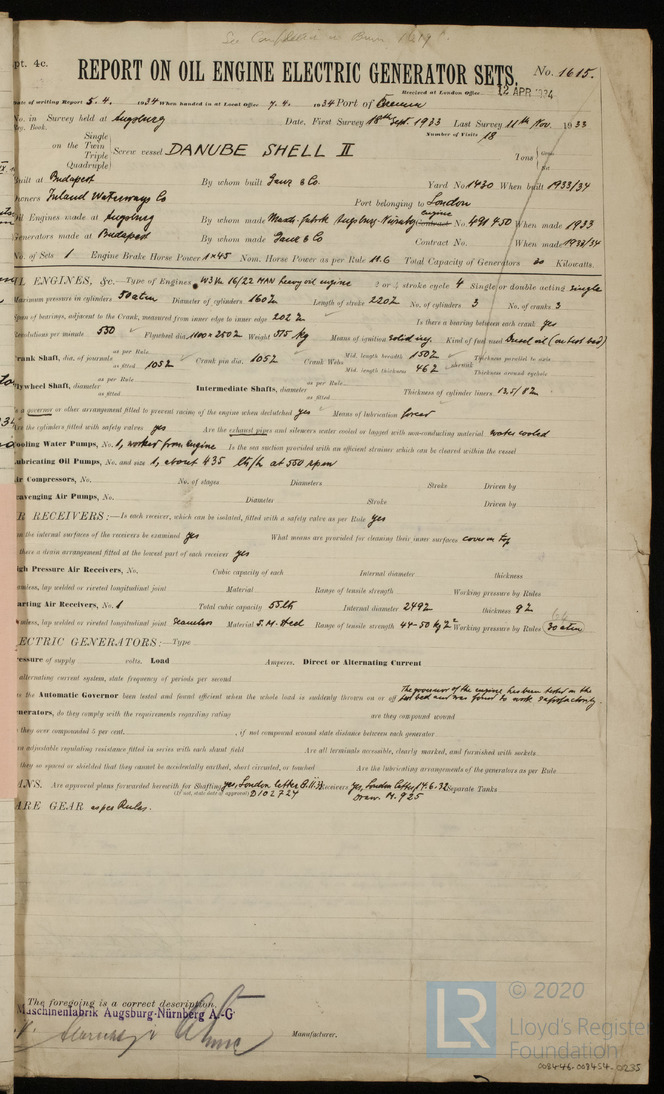 pt. 4c.
REPORT ON OIL ENGINE ELECTRIC GENERATOR SETS. No. 1615.
Received at London Office 12 APR 1934
ate of writing Report 5. 4. 1934 When handed in at Local Office 7. 4. 1934 Port of Bremen
No. in Survey held at Augsburg Date, First Survey 18th Sept. 1933 Last Survey 11th Nov. 1933
eg. Book. Number of Visits 18
Single
on the Twin
Triple
Quadruple
Screw vessel DANUBE SHELL II Tons
uilt at Budapest By whom built Ganz & Co. Yard No. 1430 When built 1933/34
Owners Inland Waterways Co Port belonging to London
Oil Engines made at Augsburg By whom made Masch. fabrik Augsburg-Nürnberg engine Contract No. 491450 When made 1933
Generators made at Budapest By whom made Ganz & Co Contract No. When made 1933/34
No. of Sets 1 Engine Brake Horse Power 1×45 Nom. Horse Power as per Rule 11.6 Total Capacity of Generators 30 Kilowatts.
IL ENGINES, &c. Type of Engines W3V 16/22 MAN heavy oil engine 2 or 4 stroke cycle 4 Single or double acting single
Maximum pressure in cylinders 50 atm Diameter of cylinders 160 Length of stroke 220 No. of cylinders 3 No. of cranks 3
pan of bearings, adjacent to the Crank, measured from inner edge to inner edge 202 Is there a bearing between each crank yes
evolutions per minute 550 Flywheel dia. 1100 × 250 Weight 575 kg Means of ignition solid inj. Kind of fuel used Diesel oil (on test bed)
rank Shaft, dia. of journals as per Rule as fitted 105 Crank pin dia. 105 Crank Webs Mid. length breadth 150 Mid. length thickness 46 shrunk Thickness parallel to axis Thickness around eyehole
lywheel Shaft, diameter as per Rule as fitted Intermediate Shafts, diameter as per Rule as fitted Thickness of cylinder liners 13,5/8
a governor or other arrangement fitted to prevent racing of the engine when declutched yes Means of lubrication forced
re the cylinders fitted with safety valves yes Are the exhaust pipes and silencers water cooled or lagged with non-conducting material water cooled
ooling Water Pumps, No. 1, worked from engine Is the sea suction provided with an efficient strainer which can be cleared within the vessel
ubricating Oil Pumps, No. and size 1, about 435 ltr/h at 550 rpm
ir Compressors, No. No. of stages Diameters Stroke Driven by
cavenging Air Pumps, No. Diameter Stroke Driven by
R RECEIVERS:—Is each receiver, which can be isolated, fitted with a safety valve as per Rule yes
n the internal surfaces of the receivers be examined yes What means are provided for cleaning their inner surfaces cover on top
there a drain arrangement fitted at the lowest part of each receiver yes
igh Pressure Air Receivers, No. Cubic capacity of each Internal diameter thickness
amless, lap welded or riveted longitudinal joint Material Range of tensile strength Working pressure by Rules
tarting Air Receivers, No. 1 Total cubic capacity 55 ltr Internal diameter 249 thickness 9
amless, lap welded or riveted longitudinal joint Seamless Material S. M. Steel Range of tensile strength 44-50 kg Working pressure by Rules 30 atm
ECTRIC GENERATORS:—Type
essure of supply volts. Load Amperes. Direct or Alternating Current
alternating current system, state frequency of periods per second
s the Automatic Governor been tested and found efficient when the whole load is suddenly thrown on or off The governor of the engine has been tested on the test bed and was found to work satisfactorily.
nerators, do they comply with the requirements regarding rating are they compound wound
they over compounded 5 per cent. , if not compound wound state distance between each generator
an adjustable regulating resistance fitted in series with each shunt field Are all terminals accessible, clearly marked, and furnished with sockets
they so spaced or shielded that they cannot be accidentally earthed, short circuited, or touched Are the lubricating arrangements of the generators as per Rule
ANS. Are approved plans forwarded herewith for Shafting yes, London letter 8.11.33 Receivers yes, London letter 14.6.32 Separate Tanks
(If not, state date of approval) D102724 Draw. M. 925
ARE GEAR as per Rules.
The foregoing is a correct description,
Maschinenfabrik Augsburg-Nürnberg A.-G
Manufacturer.
LR © 2020
Lloyd's Register
Foundation
008446-008454-0235